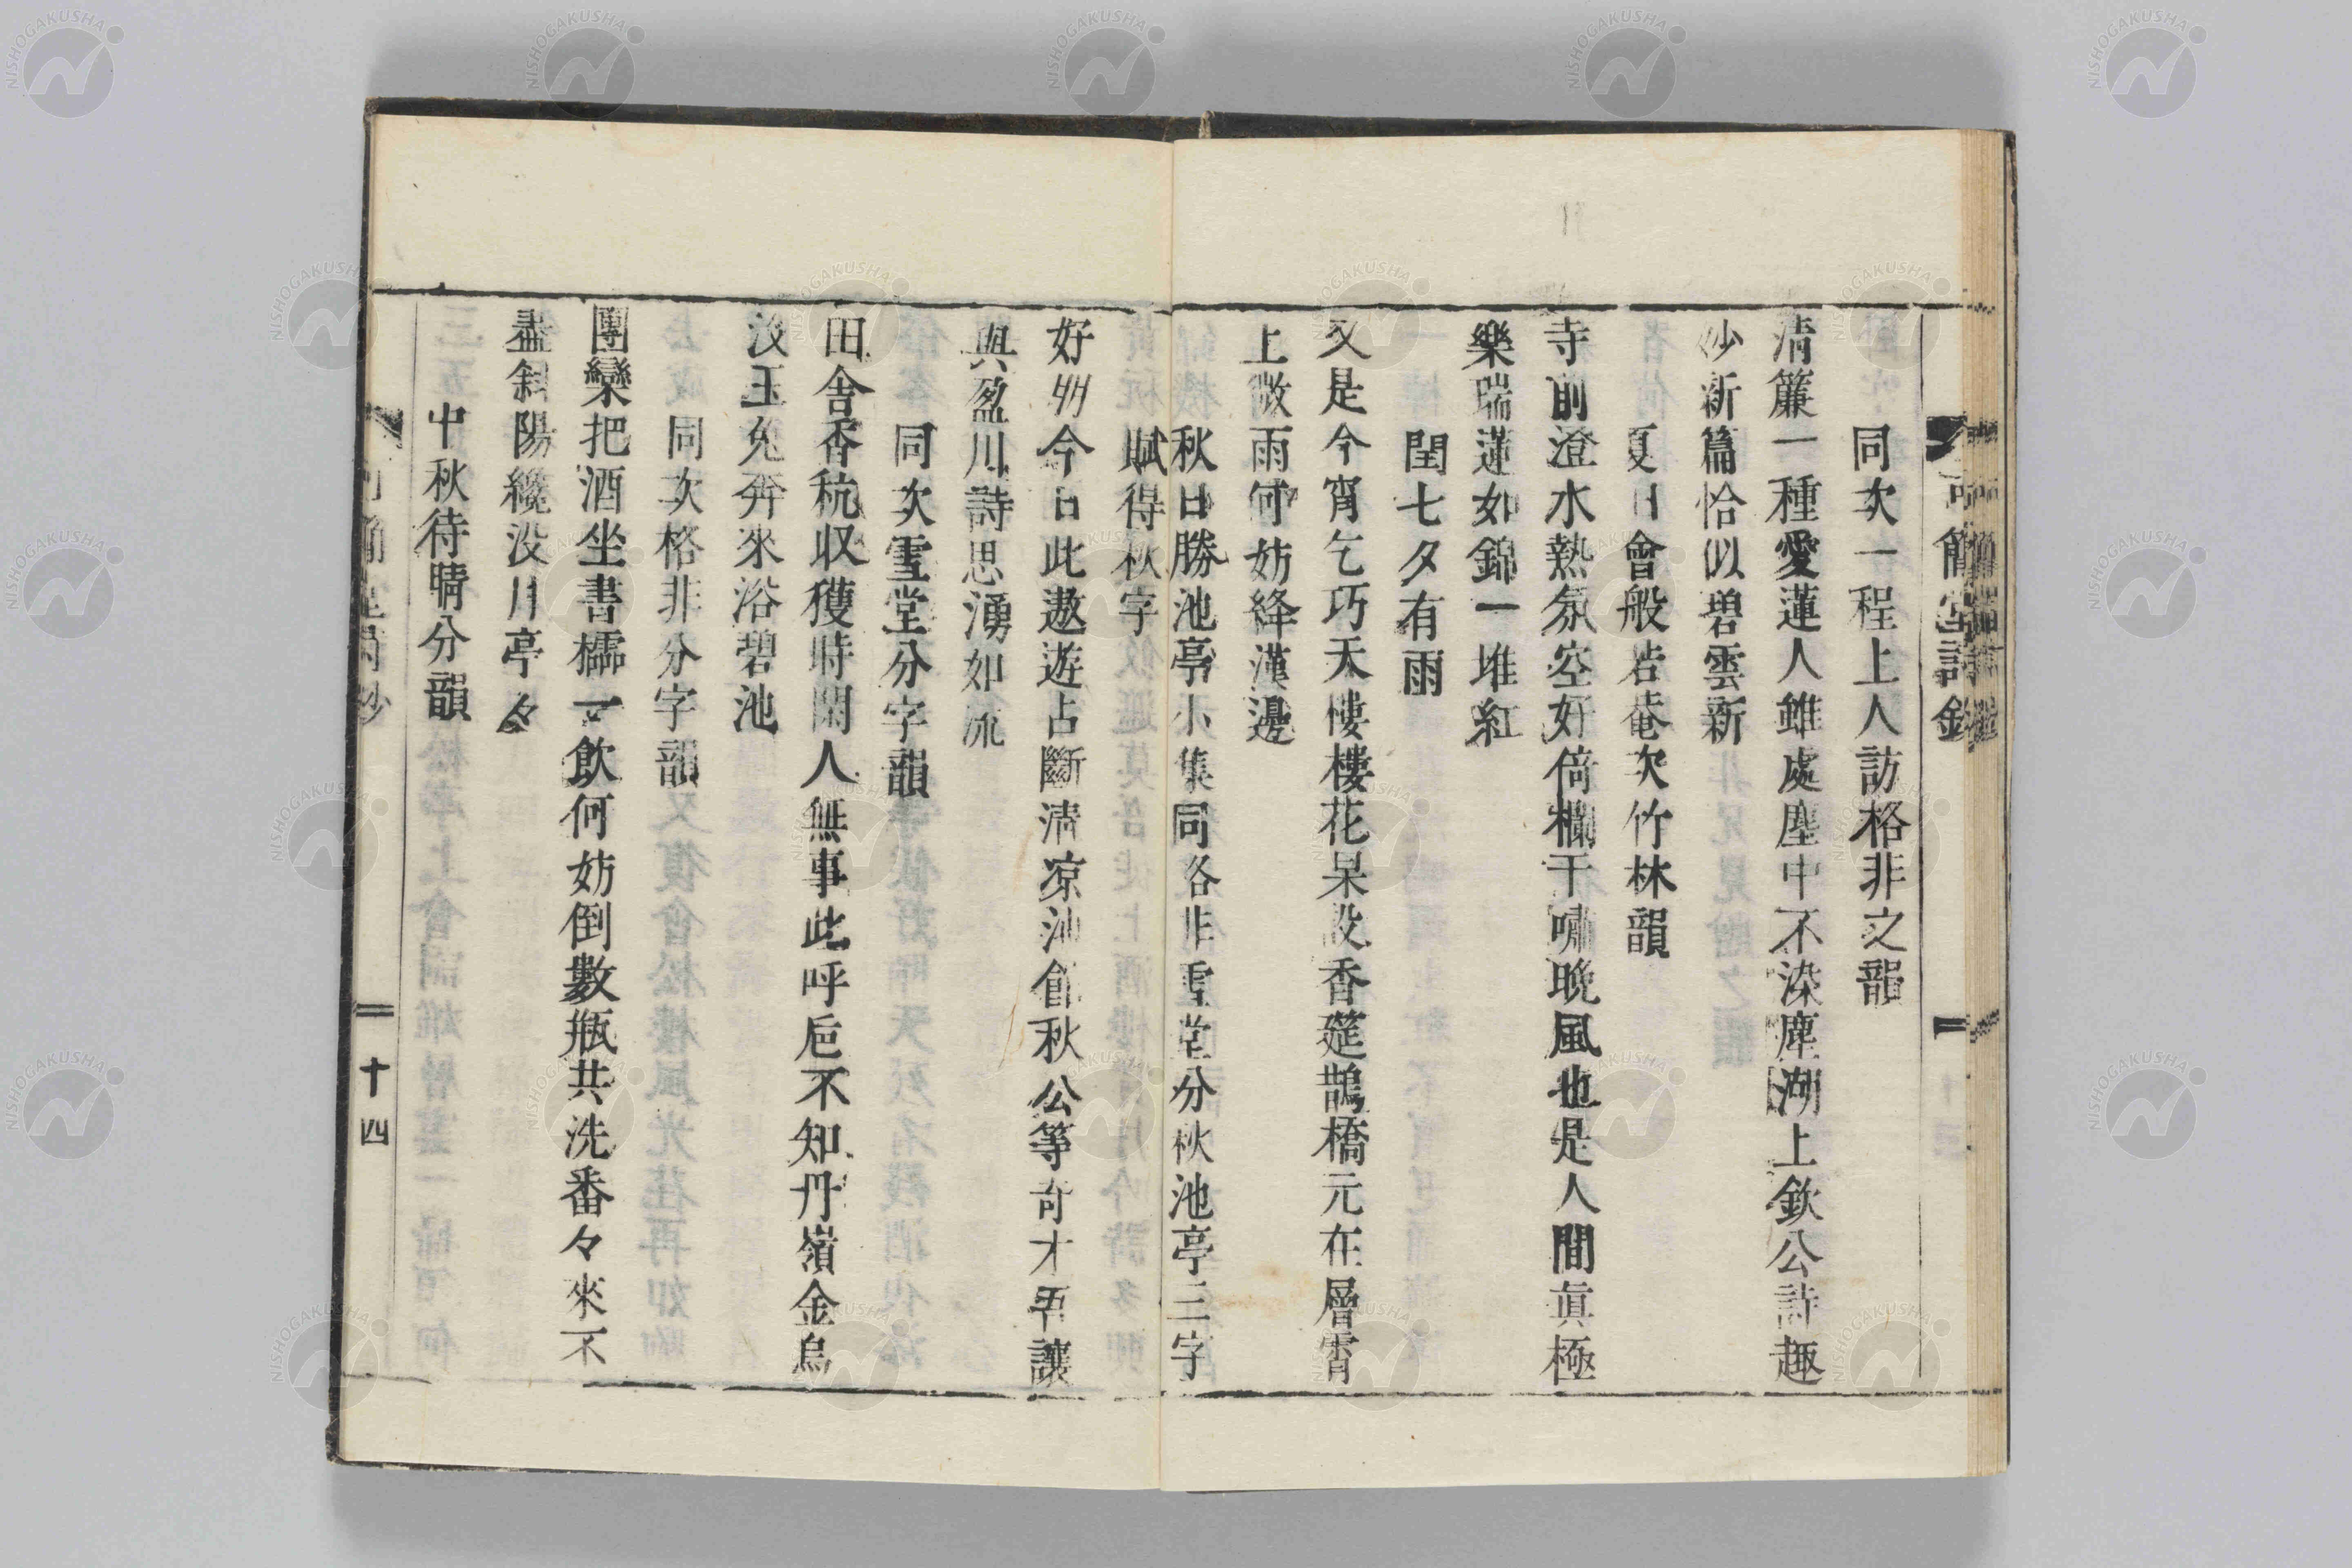 同次一程上人訪格非之韻
清簾一種愛蓮人雖處塵中不染塵湖上欽公詩趣
妙新篇恰似碧雲新
夏日會般若菴次竹林韻
寺前澄水熱氛空好倚欄干嘯晩風也是人間眞極
樂瑞蓮如錦一堆紅
閏七夕有雨
又是今宵乞巧天樓樓花果設香筵鵲橋元在層霄
上微雨何妨絳漢邊
秋日勝池亭小集同各非雪堂分秋池亭三字
賦得秋字
好明今日此遨遊占斷淸凉汕館秋公等奇才吾讓
與盈川詩思湧如流
同次雪堂分字韻
田舎香秔収獲時閑人無事此呼巵不知丹嶺金烏
沒玉兔奔來浴碧池
同次格非分字韻
團欒把酒坐書櫺一飮何妨倒數瓶共洗番々來不
盡斜陽纔没月亭々
中秋待晴分韻
十四